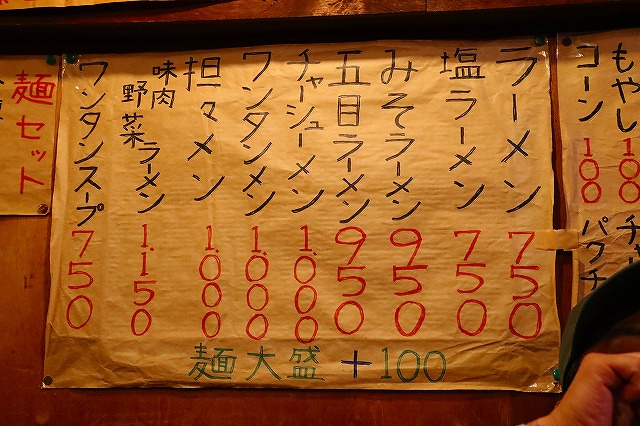 もやし 100
コーン 100
チャ
パクチ
ラーメン 750
塩ラーメン 750
みそラーメン 950
五目ラーメン 950
チャーシューメン 1.000
ワンタンメン 1.000
担々メン 1.000
味肉野菜ラーメン 1.150
ワンタンスープ 750
麺大盛+100
麺セット